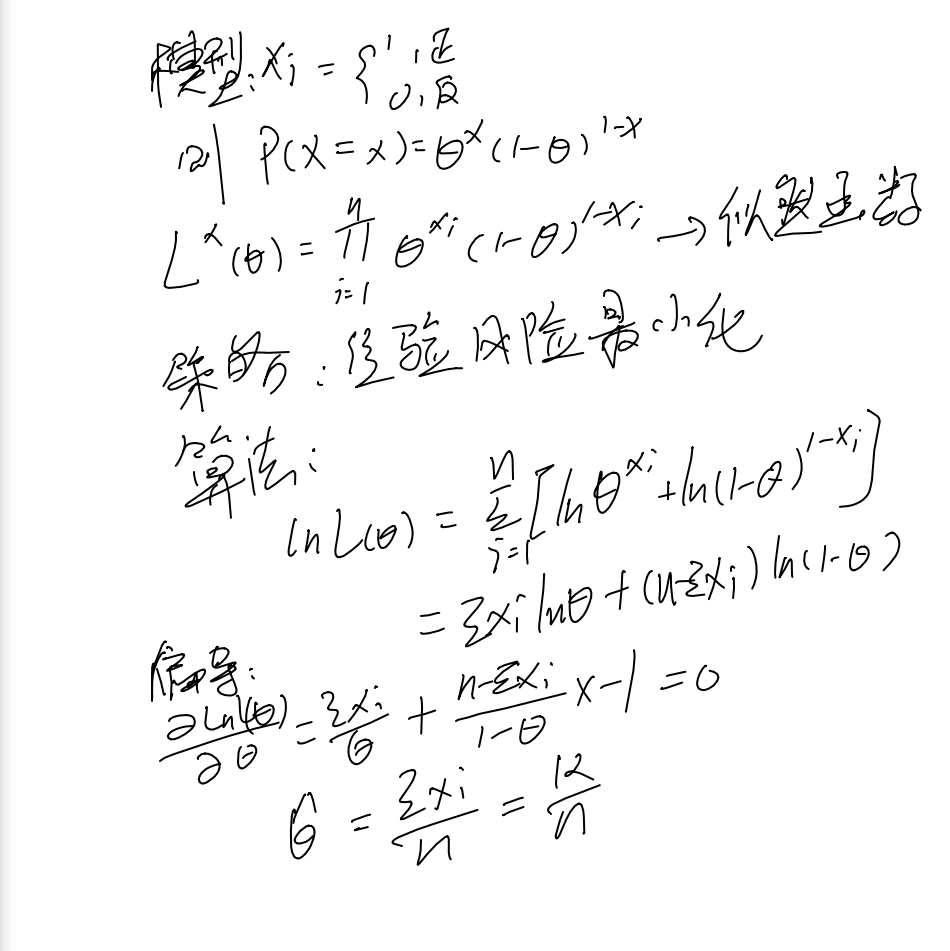 模型: Xi = { 1, 正
0, 反
则 P(X=x)=θ^x(1-θ)^{1-x}
L^x(θ) = ∏_{i=1}^{n} θ^{xi}(1-θ)^{1-xi} → 似然函数
策略: 经验风险最小化
算法:
ln L(θ) = Σ_{i=1}^{n} [ln θ^{xi} + ln(1-θ)^{1-xi}]
= Σxi lnθ + (n-Σxi) ln(1-θ)
偏导:
∂lnL(θ)/∂θ = Σxi/θ + (n-Σxi)/(1-θ) × -1 = 0
θ̂ = Σxi/n = k/n